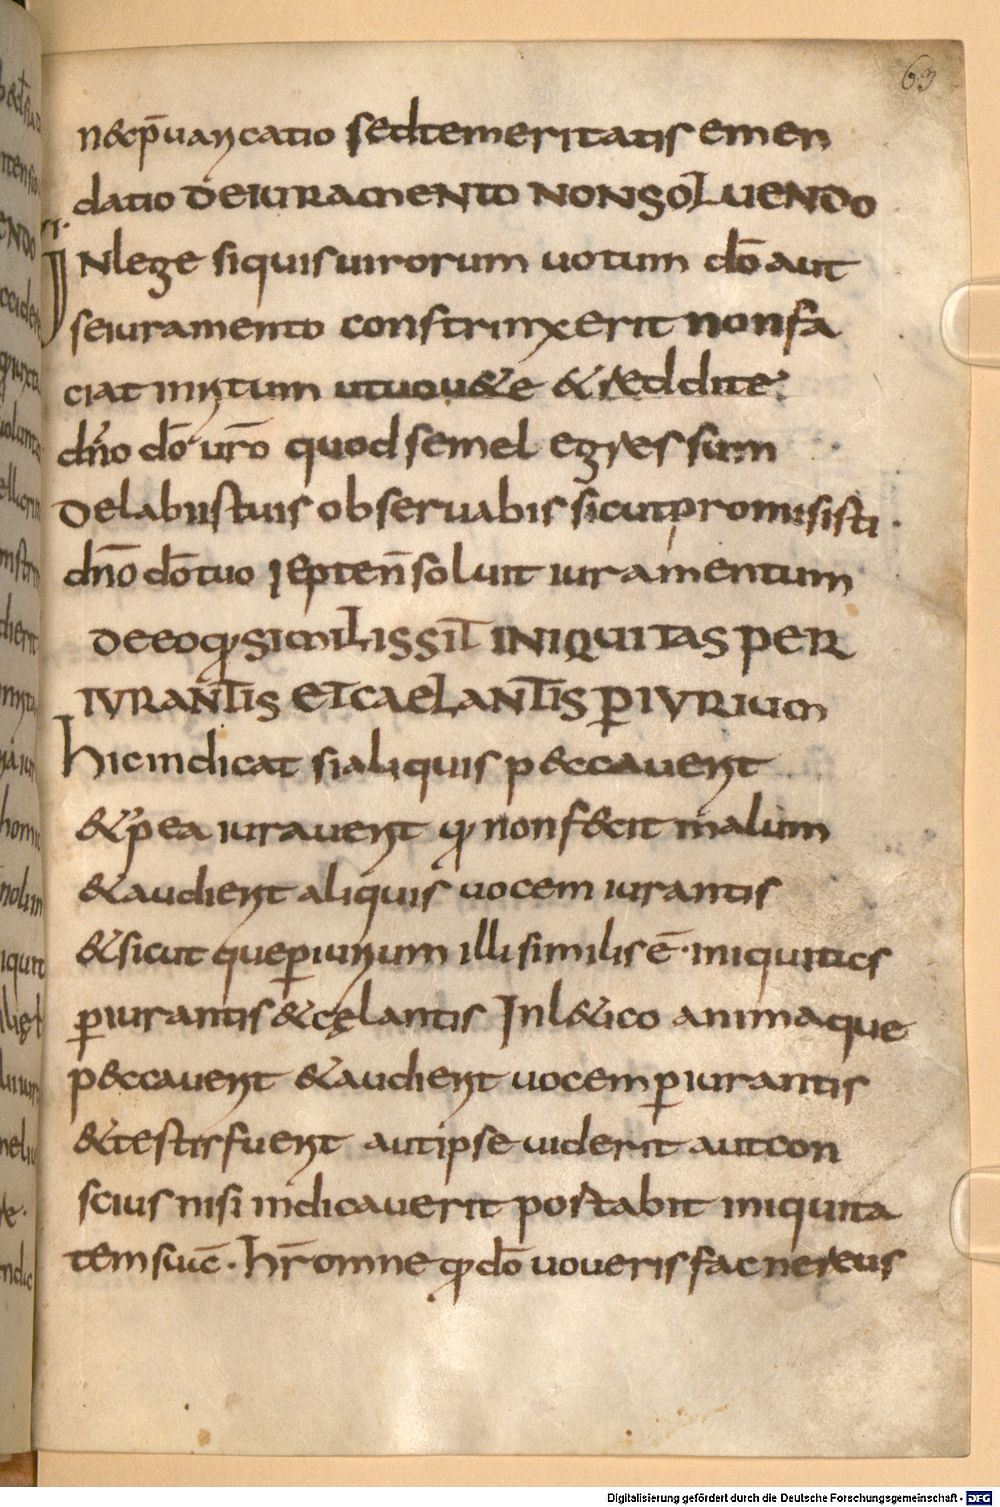 63
n&cp̄uaricatio sedtemeritatis emen
datio DEIURAMENTO NONSOLUENDO
INlege siquisuirorum uotum dōaut
seiuramento constrinxerit nonfa
ciat irritum utuou&e &reddite
dño dō ur̄o quodsemel egressum
Delabiistuis obseruabis sicutpromisisti
dn̄o dōtuo iepten̄soluit iuramentum
DEEOꝙSIMILISSIT INIQUITAS PER
IURANTIS ETCAELANTIS ꝑIURIUM
hicindicat sialiquis peccauerit
&pea iurauerit ꝙ nonfecit malum
&audierit aliquis uocem iurantis
&sicut queꝑiurium illisimilisē· iniquitas
ꝑiurantis&cęlantis Inl&ico animaque
peccauerit &audierit uocemꝑiurantis
&testisfuerit autipse uiderit autcon
scius nisi indicauerit portabit iniquita
temsuā· hr̄omne ꝙdō uoueris fac nereus
Digitalisierung gefördert durch die Deutsche Forschungsgemeinschaft - DFG